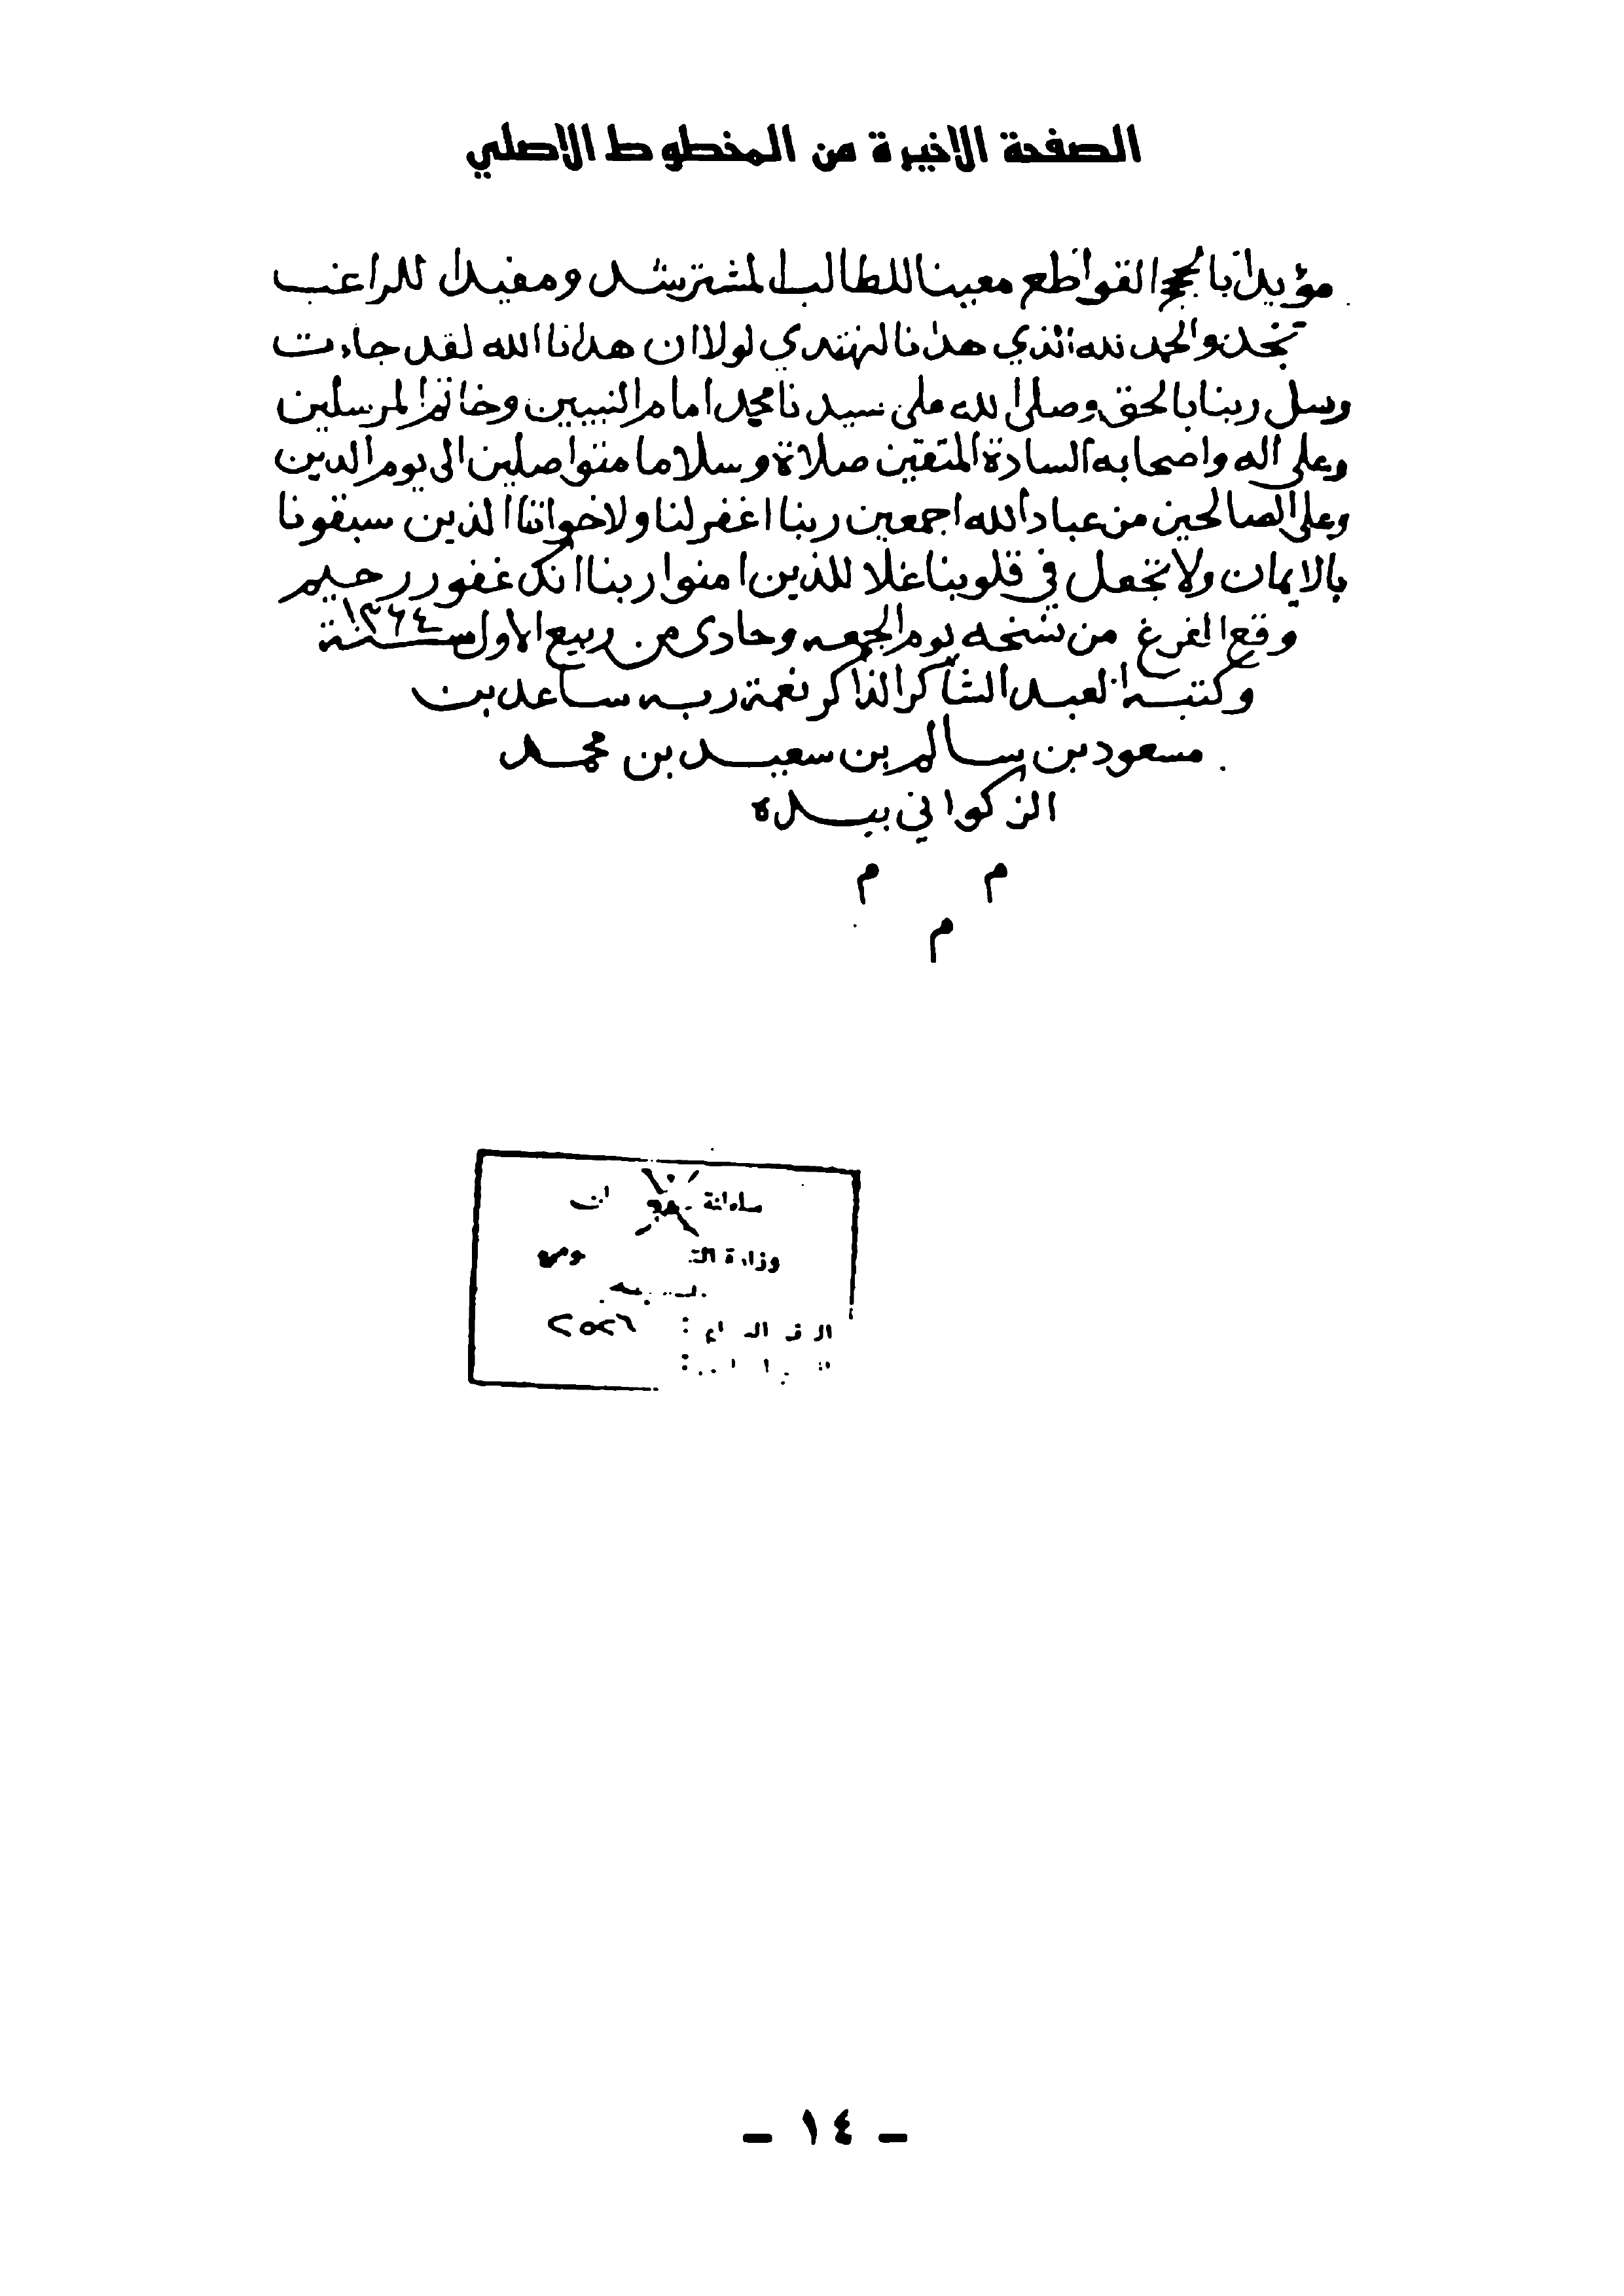 الصفحة الاخيرة من المخطوط الاصلي
مؤيدا بالحجج القواطع معينا للطالب المشترشد ومفيدا للراغب
تجد والحمد لله الذي هدانا لنهتدي لولا ان هدانا الله لقد جاءت
رسل ربنا بالحق وصلى الله على سيدنا محمد امام النبيين وخاتم المرسلين
وعلى اله واصحابه السادة المتقين صلاة وسلاما متواصلين الى يوم الدين
وعلى الصالحين من عباد الله اجمعين ربنا اغفر لنا ولاخواننا الذين سبقونا
بالايمان ولا تجعل في قلوبنا غلا للذين امنوا ربنا انك غفور رحيم
وقع الفرغ من نسخه يوم الجمعه وحادي من ربيع الاول سنة ١٣٦٤
وكتبه العبد الشاكر الذاكر نعمة ربه ساعد بن
مسعود بن سالم بن سعيد بن محمد
الزكواني بيده
م م
م
وزارة
٢٥٢٦
- ١٤ -